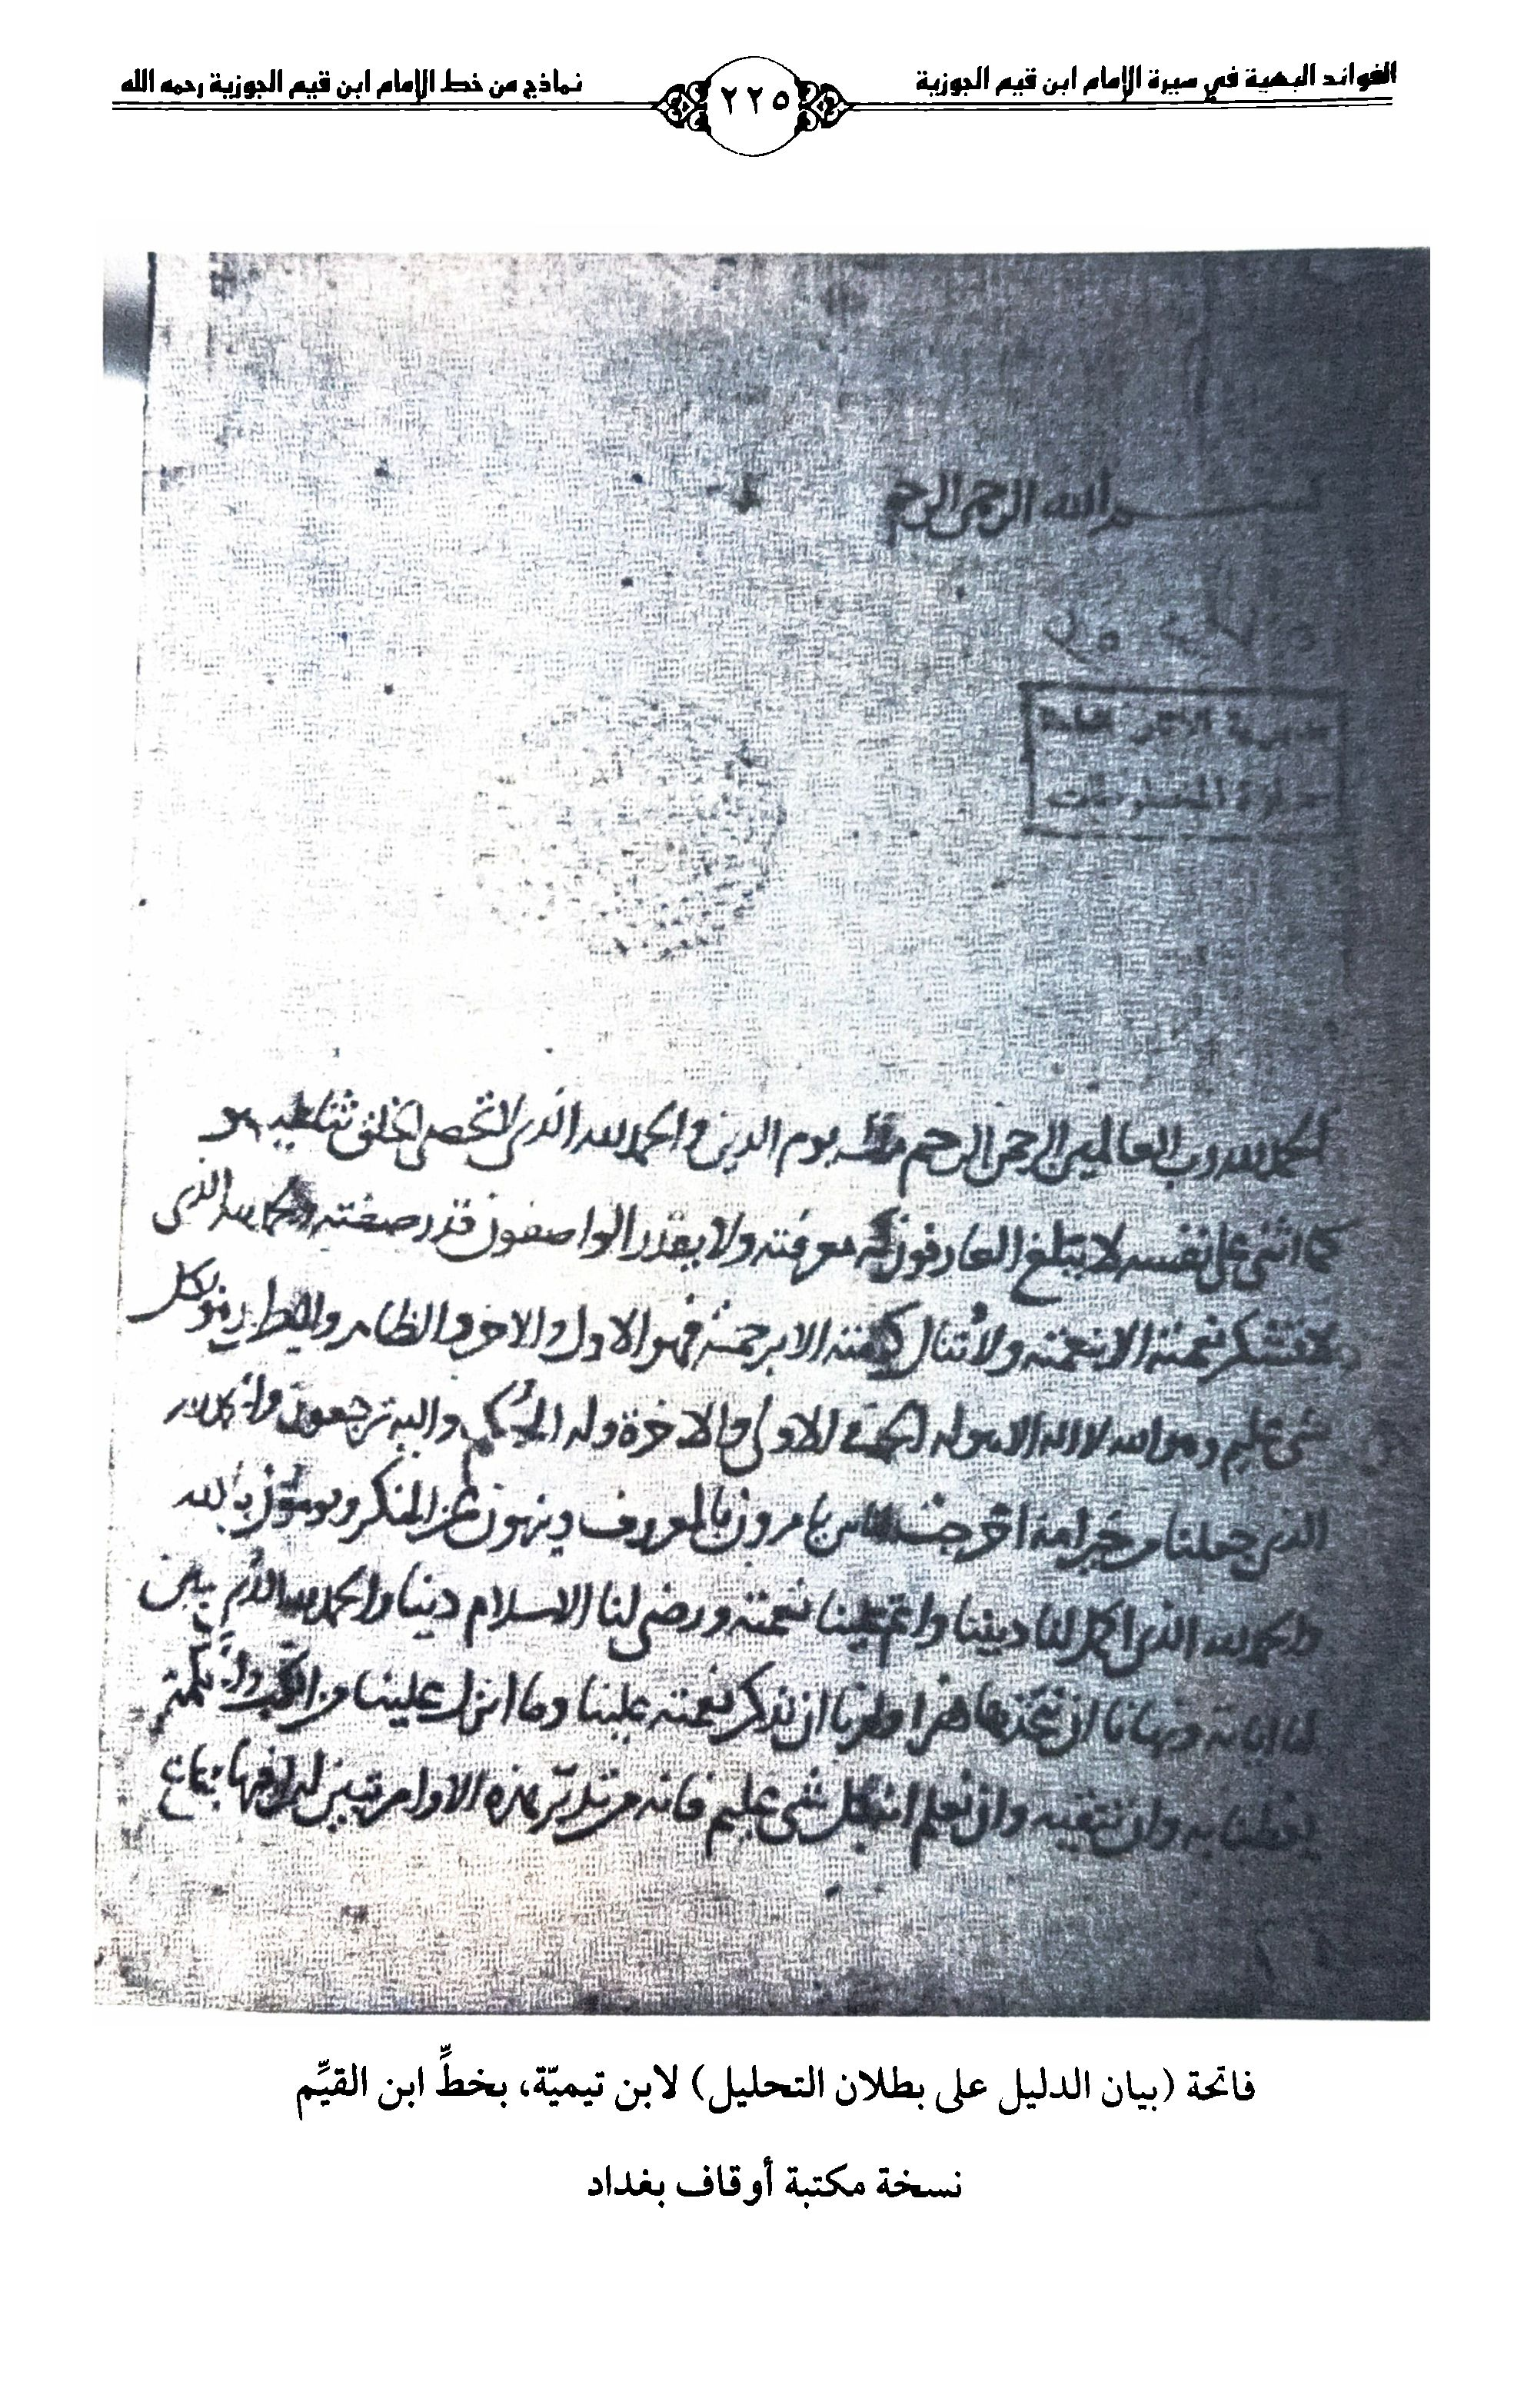 الفوائد البهية في سيرة الإمام ابن قيم الجوزية
٢٢٥
نماذج من خط الإمام ابن قيم الجوزية رحمه الله
بسم الله الرحمن الرحيم
الحمد لله رب العالمين الرحمن الرحيم ملك يوم الدين والحمد لله الذي لا تحصي الخلق ثنا عليه هو
كما اثنى على نفسه لا يبلغ العارفون كنه معرفته ولا يقدر الواصفون قدر صفته والحمد لله الذي
لا تشكر نعمته الا بنعمته ولا تنال كرامته الا برحمته فهو الاول والاخر والظاهر والباطن وهو بكل
شي عليم وهو الله لا اله الا هو له الحمد في الاولى والاخرة وله الحكم واليه ترجعون والحمد لله
الذي جعلنا من خير امة اخرجت للناس يامرون بالمعروف وينهون عن المنكر ويومنون بالله
والحمد لله الذي اكمل لنا ديننا واتم علينا نعمته ورضي لنا الاسلام دينا والحمد لله الذي بين
لنا اياته ونهانا ان نتخذها هزوا وامرنا ان نذكر نعمته علينا وما انزل علينا من الكتاب والحكمة
يعظنا به وان نتقيه وان نعلم انه بكل شي عليم فانه من تدبر هذه الاوامر تبين له ان فيها جماع
فاتحة (بيان الدليل على بطلان التحليل) لابن تيميّة، بخطِّ ابن القيِّم
نسخة مكتبة أوقاف بغداد